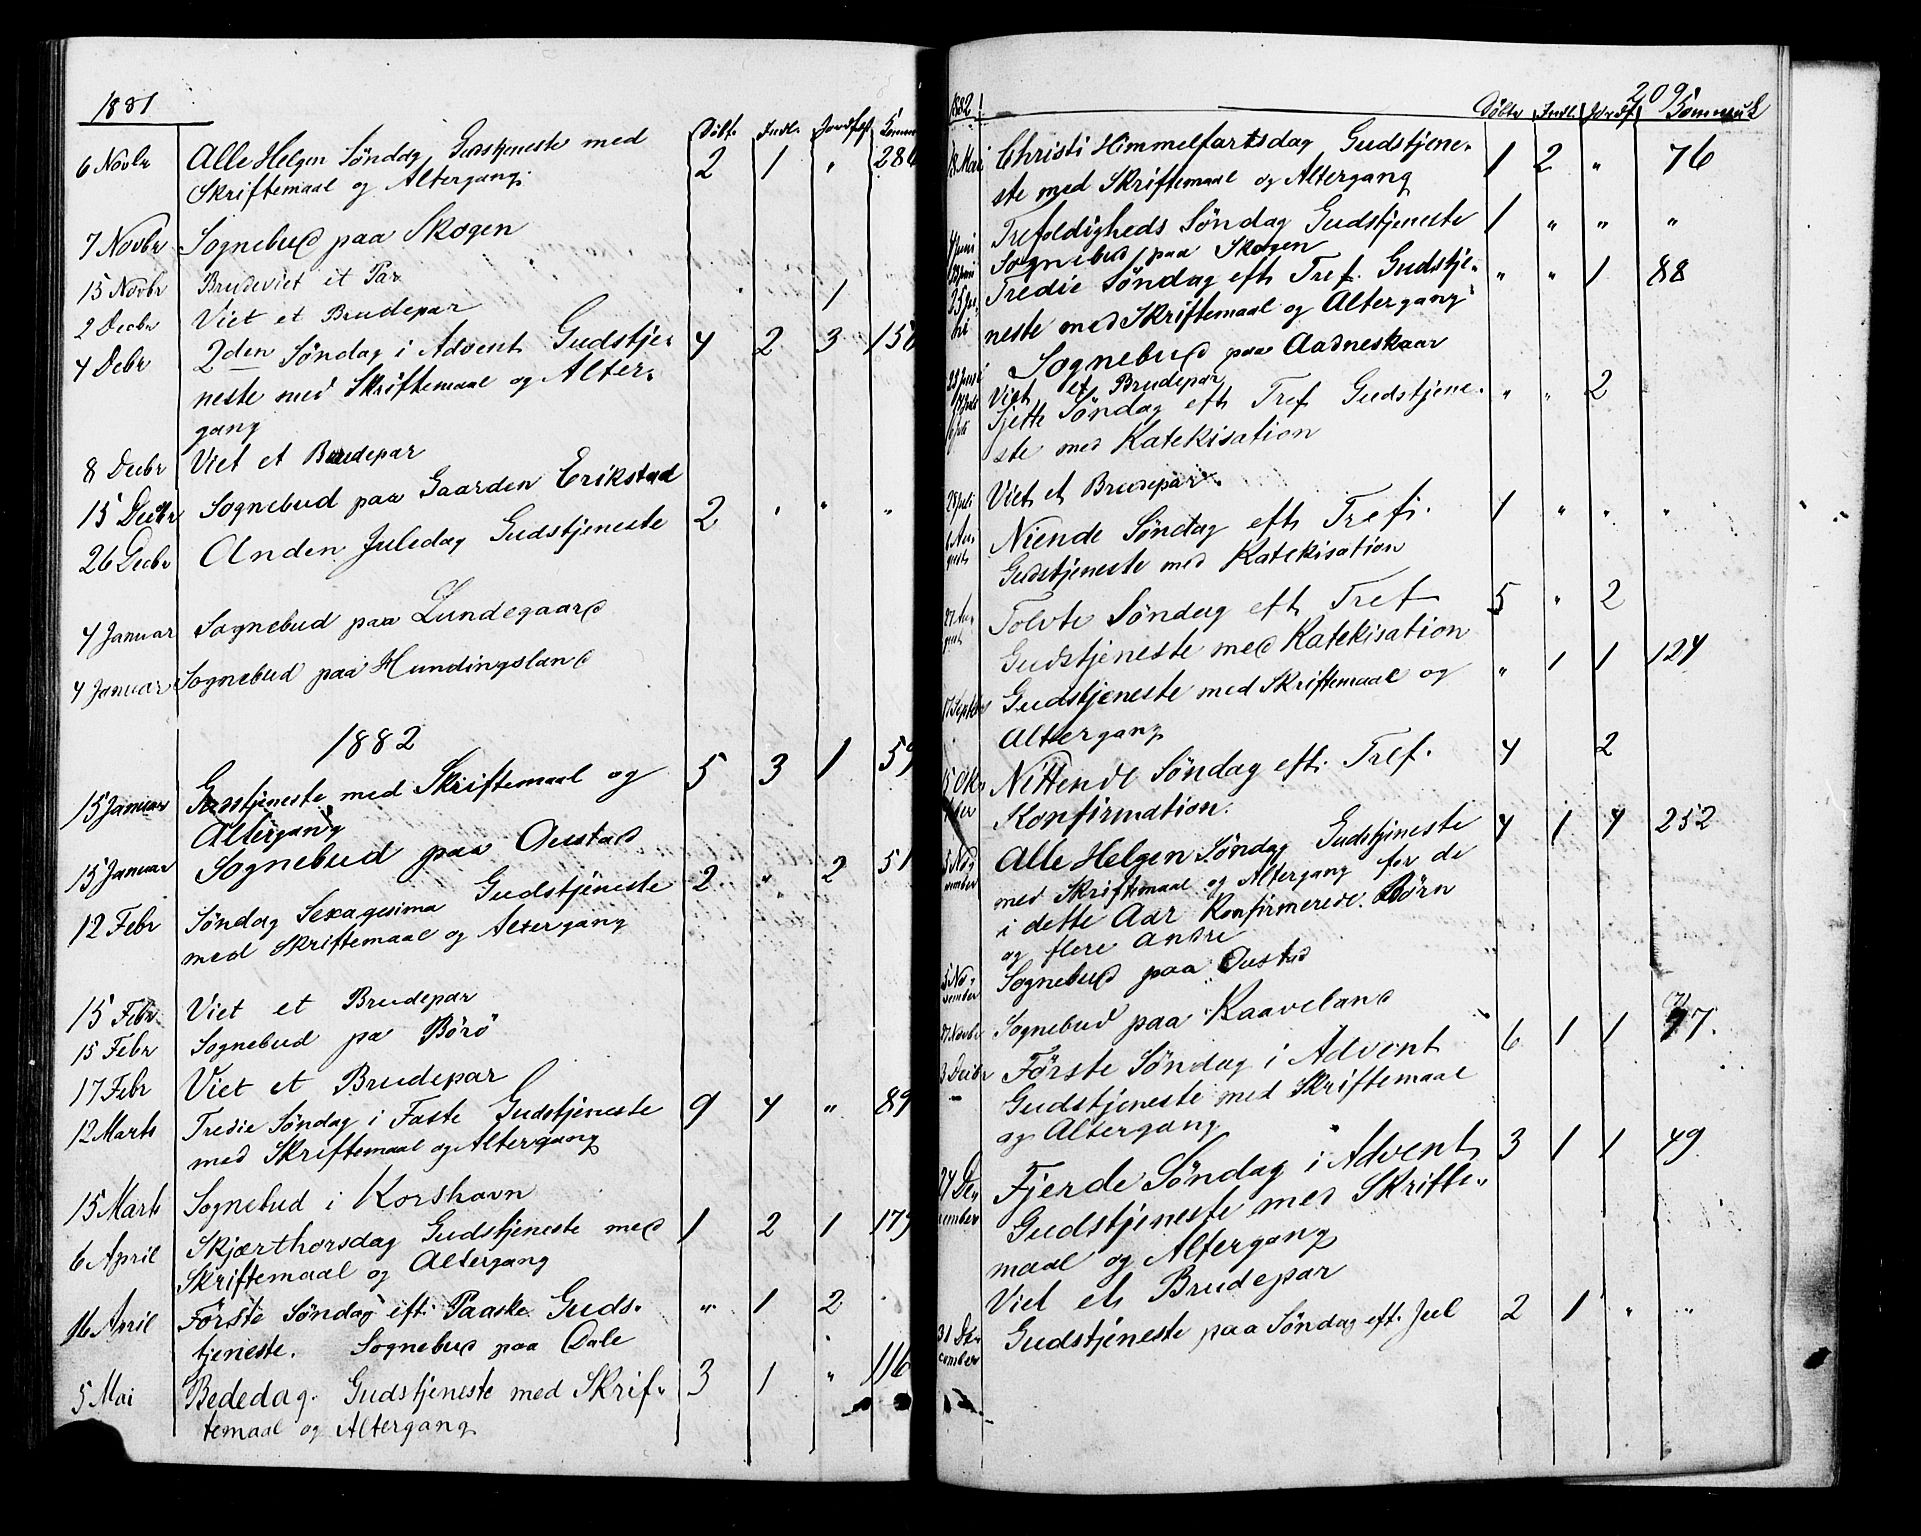 1881
Døbt. Indl. Jordf.
6 Novbr Alle Helgen Søndag Gudstjeneste med 2 1 "
Skriftemaal og Altergang.
7 Novbr Sognebud paa Skogen
15 Novbr Brudeviet et Par
2 Decbr Viet et Brudepar 1
4 Debr 2den Søndag i Advent Gudstje 4 2 3
neste med Skriftemaal og Alter-
gang
8 Decbr Viet et Brudepar
15 Decbr Sognebud paa Gaarden Erikstad
26 Decbr Anden Juledag Gudstjeneste 2 " " "
4 Januar Sognebud paa Lundegaard
4 Januar Sognebud paa Hundingsland
1882
15 Januar Gudstjeneste med Skriftemaal og 5 3 1 59
Altergang
15 Januar Sognebud paa Oustad
12 Febr Søndag Sexagesima Gudstjeneste 2 " 2 51
med Skriftemaal og Altergang
15 Febr. Viet et Brudepar
15 Febr Sognebud pa Börö
17 Febr Viet et Brudepar
12 Marts Tredie Søndag i Faste Gudstjeneste 9 4 " 89
med Skriftemaal og Altergang
15 Marts Sognebud i Korshavn
6 April Skjærthorsdag Gudstjeneste med 1 2 1
Skriftemaal og Altergang
16 April Første Søndag eft. Paaske Guds- " 1 2
tjeneste. Sognebud paa Dale
5 Mai Bededag. Gudstjeneste med Skrif- 3 1 " 116
temaal og Altergang
209
1882
Döbte Indl. Jordf Kommunik
18 Mai Christi Himmelfartsdag Gudstjene- 1 2 " 76
ste med Skriftemaal og Altergang
4 Juni Trefoldigheds Søndag Gudstjeneste 1 " " "
Sognebud paa Skogen
Tredie Søndag eft Tref. Gudstje- " " 1 88
neste med Skriftemaal og Altergang
Sognebud paa Aadneskaar
Viet et Brudepar
Sjette Søndag eft Tref Gudstjene- " " 2
ste med Katekisation
28 Juli Viet et Brudepar.
Niende Søndag eft Tref. 1 " " "
Gudstjeneste med Katekisation
27 Au-
gust Tolvte Søndag eft Tref 5 " 2
Gudstjeneste med Katekisation
17 Septbr Gudstjeneste med Skriftemaal og " 1 1 124
Altergang
15 Ok- Nittende Søndag eft. Tref. 4 2
tober Konfirmation.
5 No- Alle Helgen Søndag Gudstjeneste 4 1 4 252
vember med Skriftemaal og Altergang for de
i dette Aar Konfirmerede Børn
og flere andre
5 No-
vember Sognebud paa Oustad
Sognebud paa Raaveland
3 Decbr Første Søndag i Advent 6 1 1
Gudstjeneste med Skriftemaal
og Altergang
24 De- Fjerde Søndag i Advent 3 1 1 49
cember Gudstjeneste med Skrifte-
maal og Altergang
Viet et Brudepar
31 De-
cember Gudstjeneste paa Søndag eft. Jul 2 1 " "